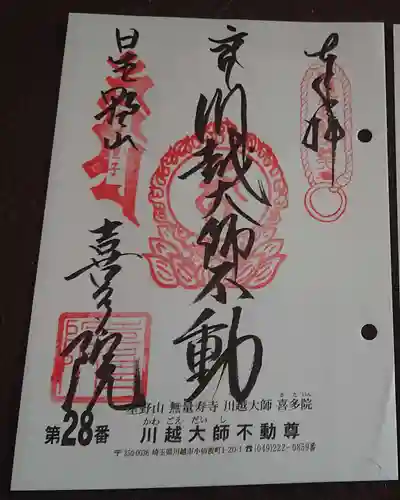 奉拝
川越大師不動
星野山
喜多院
星野山 無量寿寺 川越大師 喜多院
き た いん
かわ ごえ だい し
第28番 川越大師不動尊
〒350-0036 埼玉県川越市小仙波町1-20-1 ☎(049)222-0859番